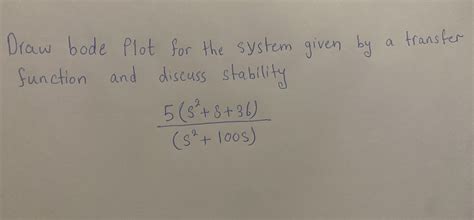 Draw bode Plot for the system given by a transfer
function and discuss stability
5(s²+s+36)
(s²+100s)